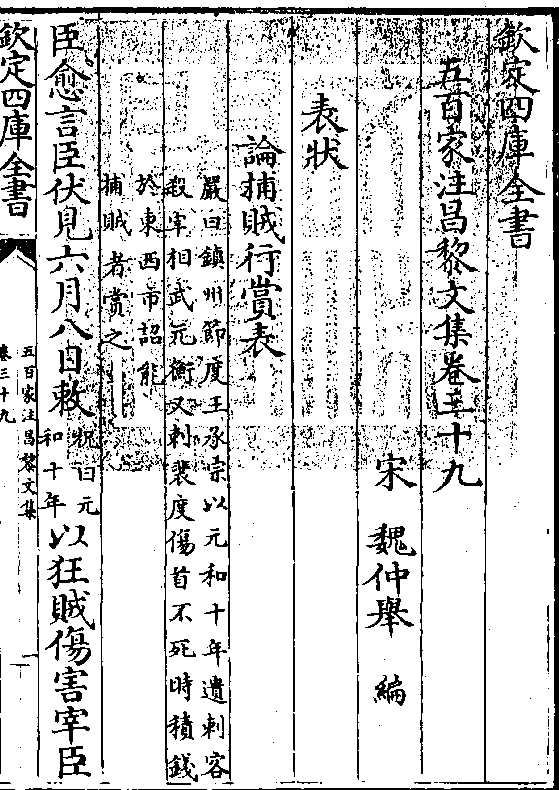 欽定四庫全書
五百家注昌黎文集卷三十九
宋 魏仲舉 編
表狀
論捕賊行賞表
嚴曰鎮州節度王承宗以元和十年遣刺客
殺宰相武元衡又刺裴度傷首不死時積錢
於東西市詔能
捕賊者賞之
臣愈言臣伏見六月八日敕
祝曰元
和十年
以狂賊傷害宰臣
欽定四庫全書
五百家注昌黎文集
卷三十九
一